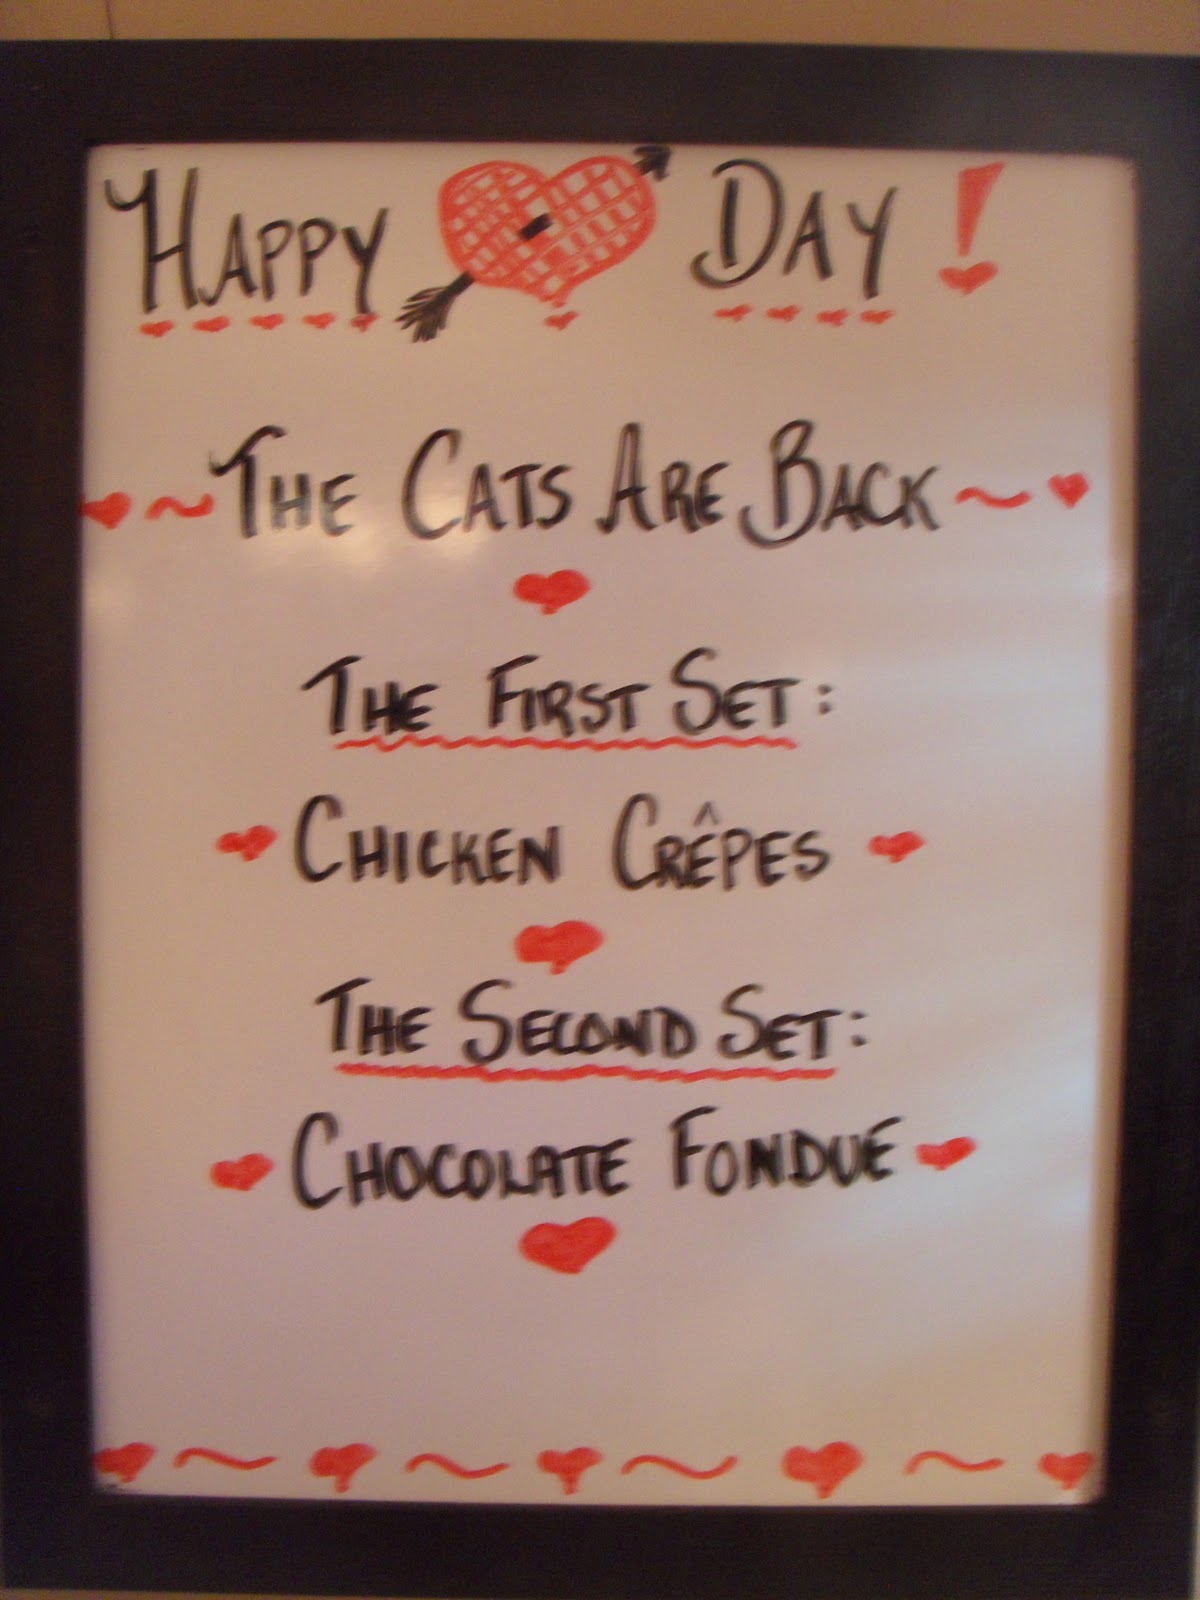 HAPPY DAY!
THE CATS ARE BACK
THE FIRST SET:
CHICKEN CRÊPES
THE SECOND SET:
CHOCOLATE FONDUE